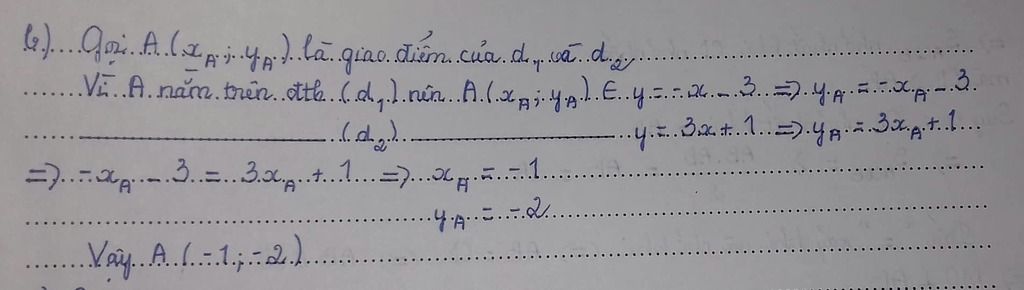 b) Gọi A (x_A; y_A) là giao điểm của d₁ và d₂
Vì A nằm trên đtb (d₁) nên A (x_A; y_A) ∈ y = -x - 3 => y_A = -x_A - 3
(d₂) y = 3x + 1 => y_A = 3x_A + 1
=> -x_A - 3 = 3x_A + 1 => x_A = -1
y_A = -2
Vậy A (-1; -2)